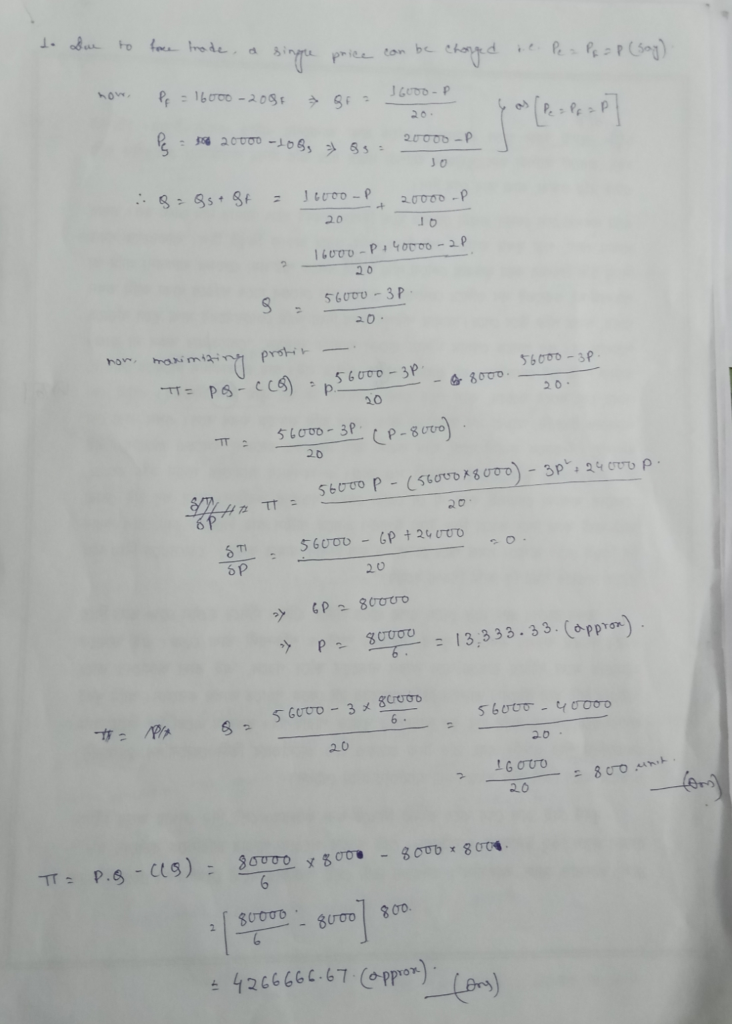 1. Due to free trade, a single price can be charged i.e. Pc = PF = P (say)
now, PF = 16000 - 20QF ⇒ QF = (16000 - P)/20
PS = 20000 - 10QS ⇒ QS = (20000 - P)/10 } as [Pc = PF = P]
∴ Q = QS + QF = (16000 - P)/20 + (20000 - P)/10
= (16000 - P + 40000 - 2P)/20
Q = (56000 - 3P)/20.
now, maximizing profit —
π = PQ - C(Q) = P. (56000 - 3P)/20 - 8000. (56000 - 3P)/20.
π = (56000 - 3P)/20 (P - 8000).
π = (56000P - (56000 × 8000) - 3P² + 24000P.)/20.
δπ/δP = (56000 - 6P + 24000)/20 = 0.
⇒ 6P = 80000
⇒ P = 80000/6. = 13,333.33. (approx).
Q = (56000 - 3 × 80000/6.)/20 = (56000 - 40000)/20.
= 16000/20 = 800 unit. (Ans)
π = P.Q - C(Q) = 80000/6 × 800 - 8000 × 800.
= [80000/6 - 8000] 800.
= 4266666.67 (approx). (Ans)